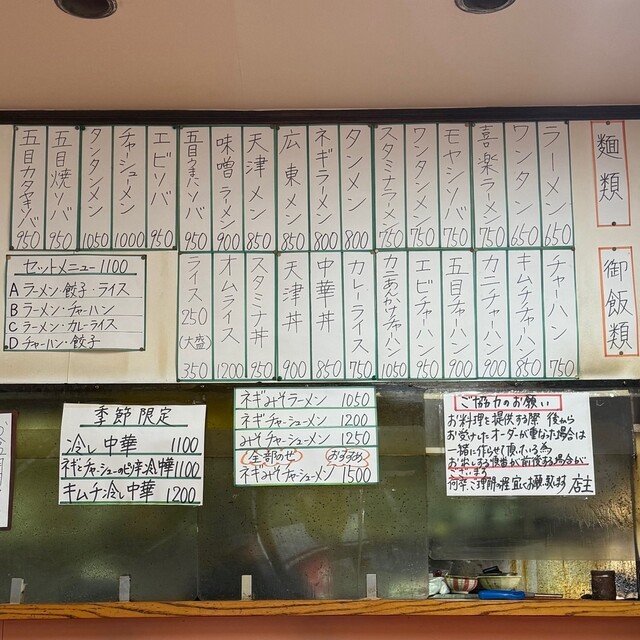 麺類
ラーメン 650
ワンタン 650
喜楽ラーメン 750
モヤシソバ 750
ワンタンメン 750
スタミナラーメン 750
タンメン 800
ネギラーメン 800
広東メン 850
天津メン 850
味噌ラーメン 900
五目うまにソバ 950
エビソバ 950
チャーシューメン 1000
タンタンメン 1050
五目焼ソバ 950
五目カタヤキソバ 950
御飯類
チャーハン 750
キムチチャーハン 850
カニチャーハン 900
五目チャーハン 900
エビチャーハン 950
カニあんかけチャーハン 1050
カレーライス 750
中華丼 850
天津丼 900
スタミナ丼 950
オムライス 1200
ライス 250
(大盛) 350
セットメニュー 1100
A ラーメン・餃子・ライス
B ラーメン・チャーハン
C ラーメン・カレーライス
D チャーハン・餃子
季節限定
冷し中華 1100
ネギとチャーシューのピリ辛冷中華 1100
キムチ冷し中華 1200
ネギみそラーメン 1050
ネギチャーシューメン 1200
みそチャーシューメン 1250
(全部のせ) (おすすめ)
ネギみそチャーシューメン 1500
ご協力のお願い
お料理を提供する際 後から
お受けしたオーダーが重なた場合は
一緒に作らせて頂いている為
お出しする順番が前後する場合がご
ざいます
何卒、ご理解の程宜しくお願い致します 店主